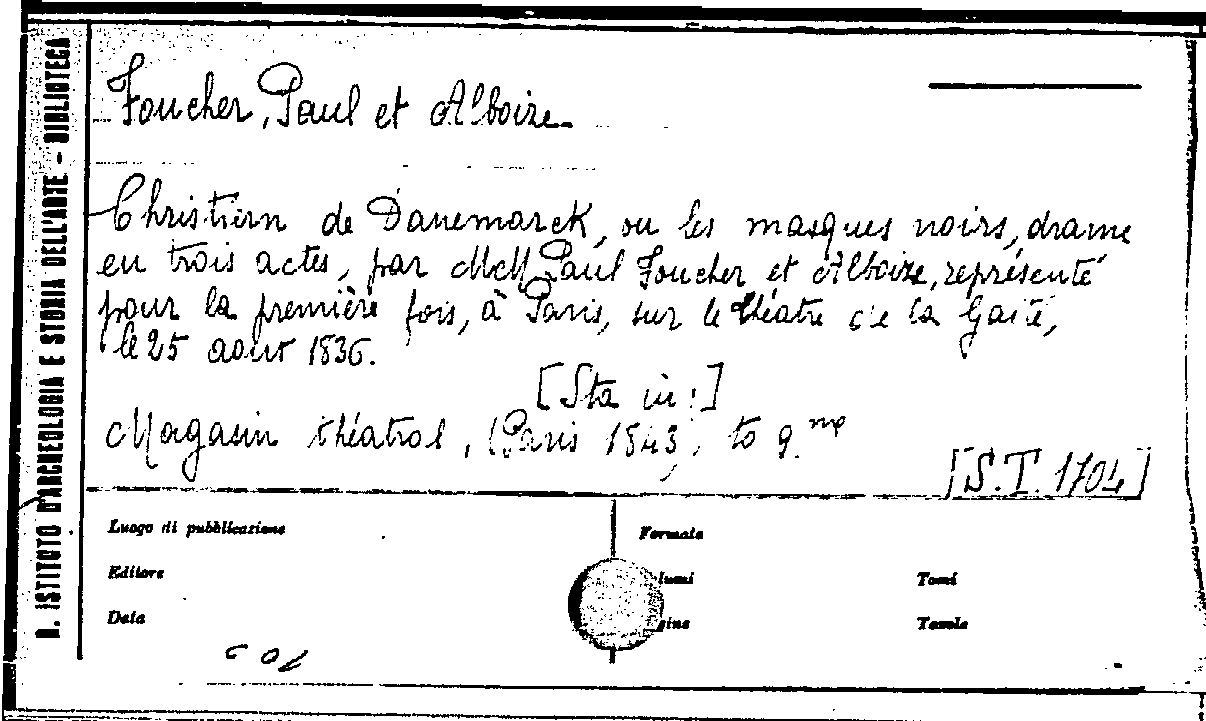 R. ISTITUTO D'ARCHEOLOGIA E STORIA DELL'ARTE - BIBLIOTECA
Foucher, Paul et Alboize.
Christiern de Danemarck, ou les masques noirs, drame
en trois actes, par MM. Paul Foucher et Alboize, représenté
pour la première fois, à Paris, sur le théatre de la Gaité,
le 25 aout 1836.
[Sta in:]
Magasin théatral, (Paris 1843) to 9.
[S.T. 1704]
Luogo di pubblicazione
Formato
Editore
Tomi
Data
Tavole